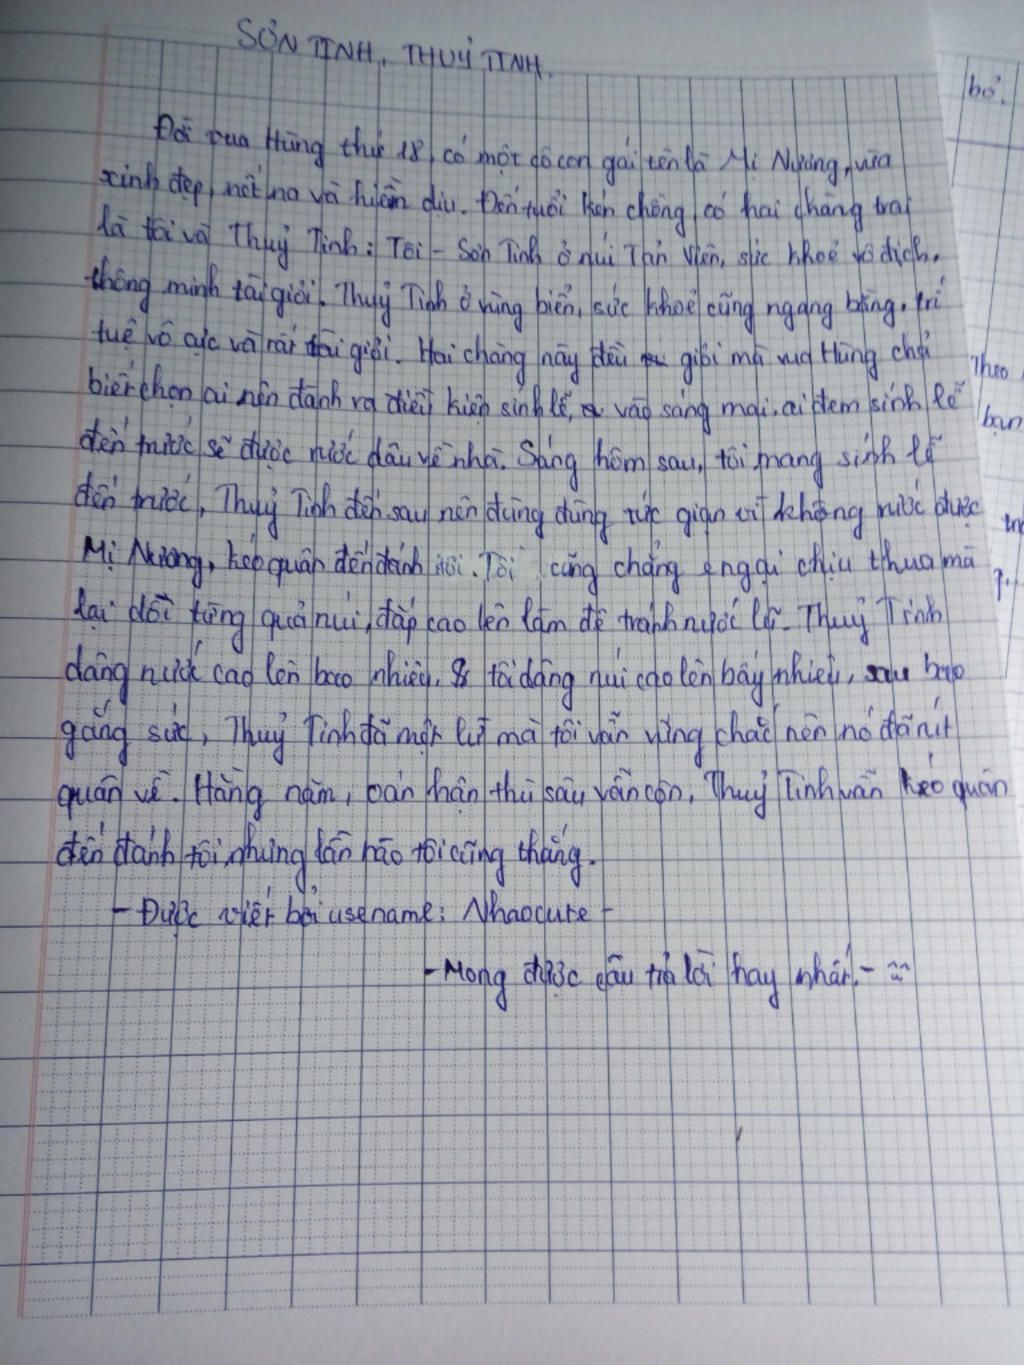 SƠN TINH, THUỶ TINH.
bỏ.
Đời vua Hùng thứ 18, có một cô con gái tên là Mị Nương, vừa
xinh đẹp, nết na và hiền dịu. Đến tuổi kén chồng, có hai chàng trai
là tôi và Thuỷ Tinh: Tôi - Sơn Tinh ở núi Tản Viên, sức khoẻ vô địch,
thông minh tài giỏi. Thuỷ Tinh ở vùng biển, sức khoẻ cũng ngang bằng, trí
tuệ vô cực và rất tài giỏi. Hai chàng này đều giỏi mà vua Hùng chả
Theo
biết chọn ai nên đành ra điều kiện sính lễ, vào sáng mai, ai đem sính lễ
bạn
đến trước sẽ được rước dâu về nhà. Sáng hôm sau, tôi mang sính lễ
đến trước, Thuỷ Tinh đến sau nên đùng đùng tức giận vì không rước được
Mị Nương, kéo quân đến đánh tôi. Tôi cũng chẳng e ngại chịu thua mà
lại dời từng quả núi, đắp cao lên làm đê tránh nước lũ. Thuỷ Tinh
dâng nước cao lên bao nhiêu, tôi dâng núi cao lên bấy nhiêu, sau bao
gắng sức, Thuỷ Tinh đã mệt lử mà tôi vẫn vững chắc nên nó đã rút
quân về. Hằng năm, oán hận thù sâu vẫn còn, Thuỷ Tinh vẫn kéo quân
đến đánh tôi, nhưng lần nào tôi cũng thắng.
- Được viết bởi usename: Nhaocute -
- Mong được câu trả lời hay nhất. -